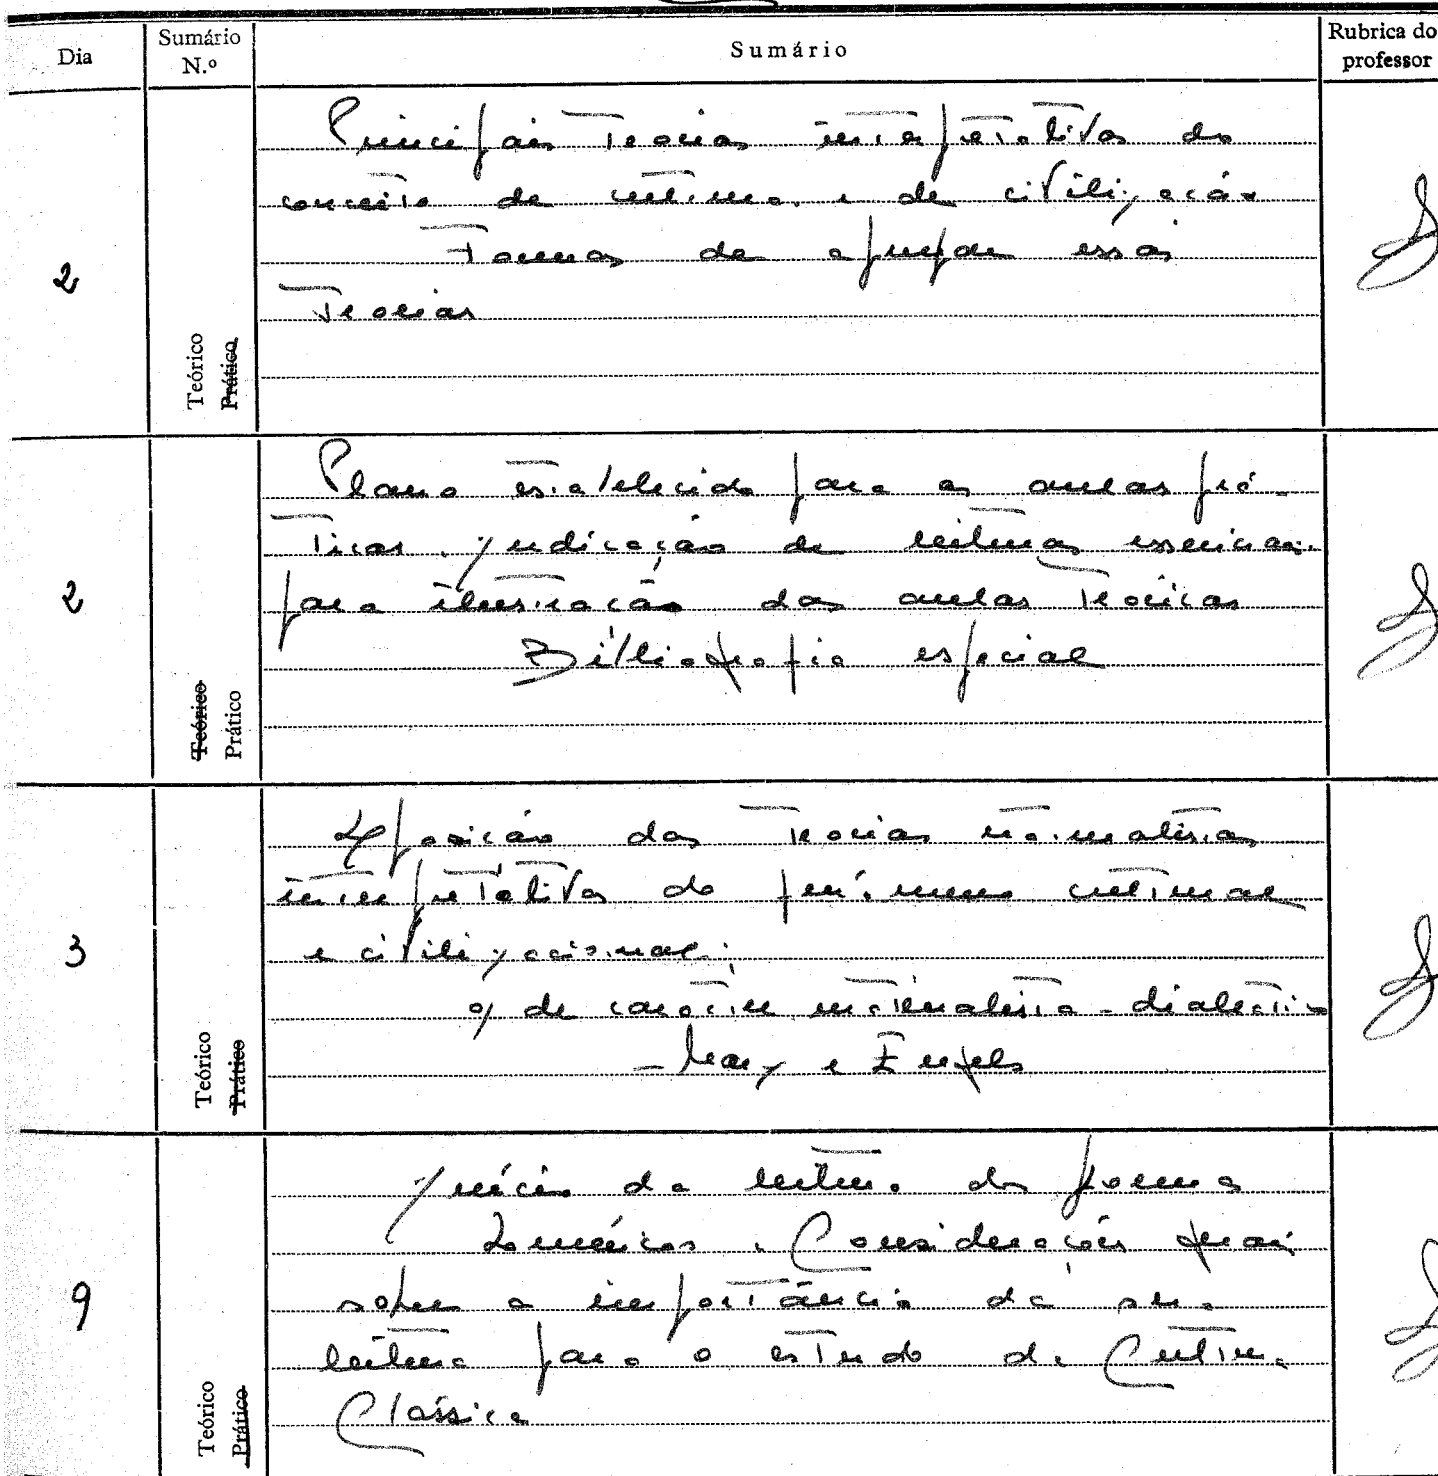 Dia
Sumário
N.º
Sumário
Rubrica do
professor
2
Teórico
Prático
Principais Teorias interpretativas do
conceito de cultura e de civilização
Formas de agrupar essas
Teorias
2
Teórico
Prático
Plano estabelecido para as aulas prá-
ticas. Indicação de leituras essenciais
para ilustração das aulas Teóricas
Bibliografia especial
3
Teórico
Prático
Exposição das Teorias
interpretativas do fenómeno cultural
e civilizacional:
a) de carácter materialista-dialéctico
- Marx e Engels
9
Teórico
Prático
Início da leitura dos poemas
Homéricos. Considerações gerais
sobre a importância da sua
leitura para o estudo da Cultura
Clássica